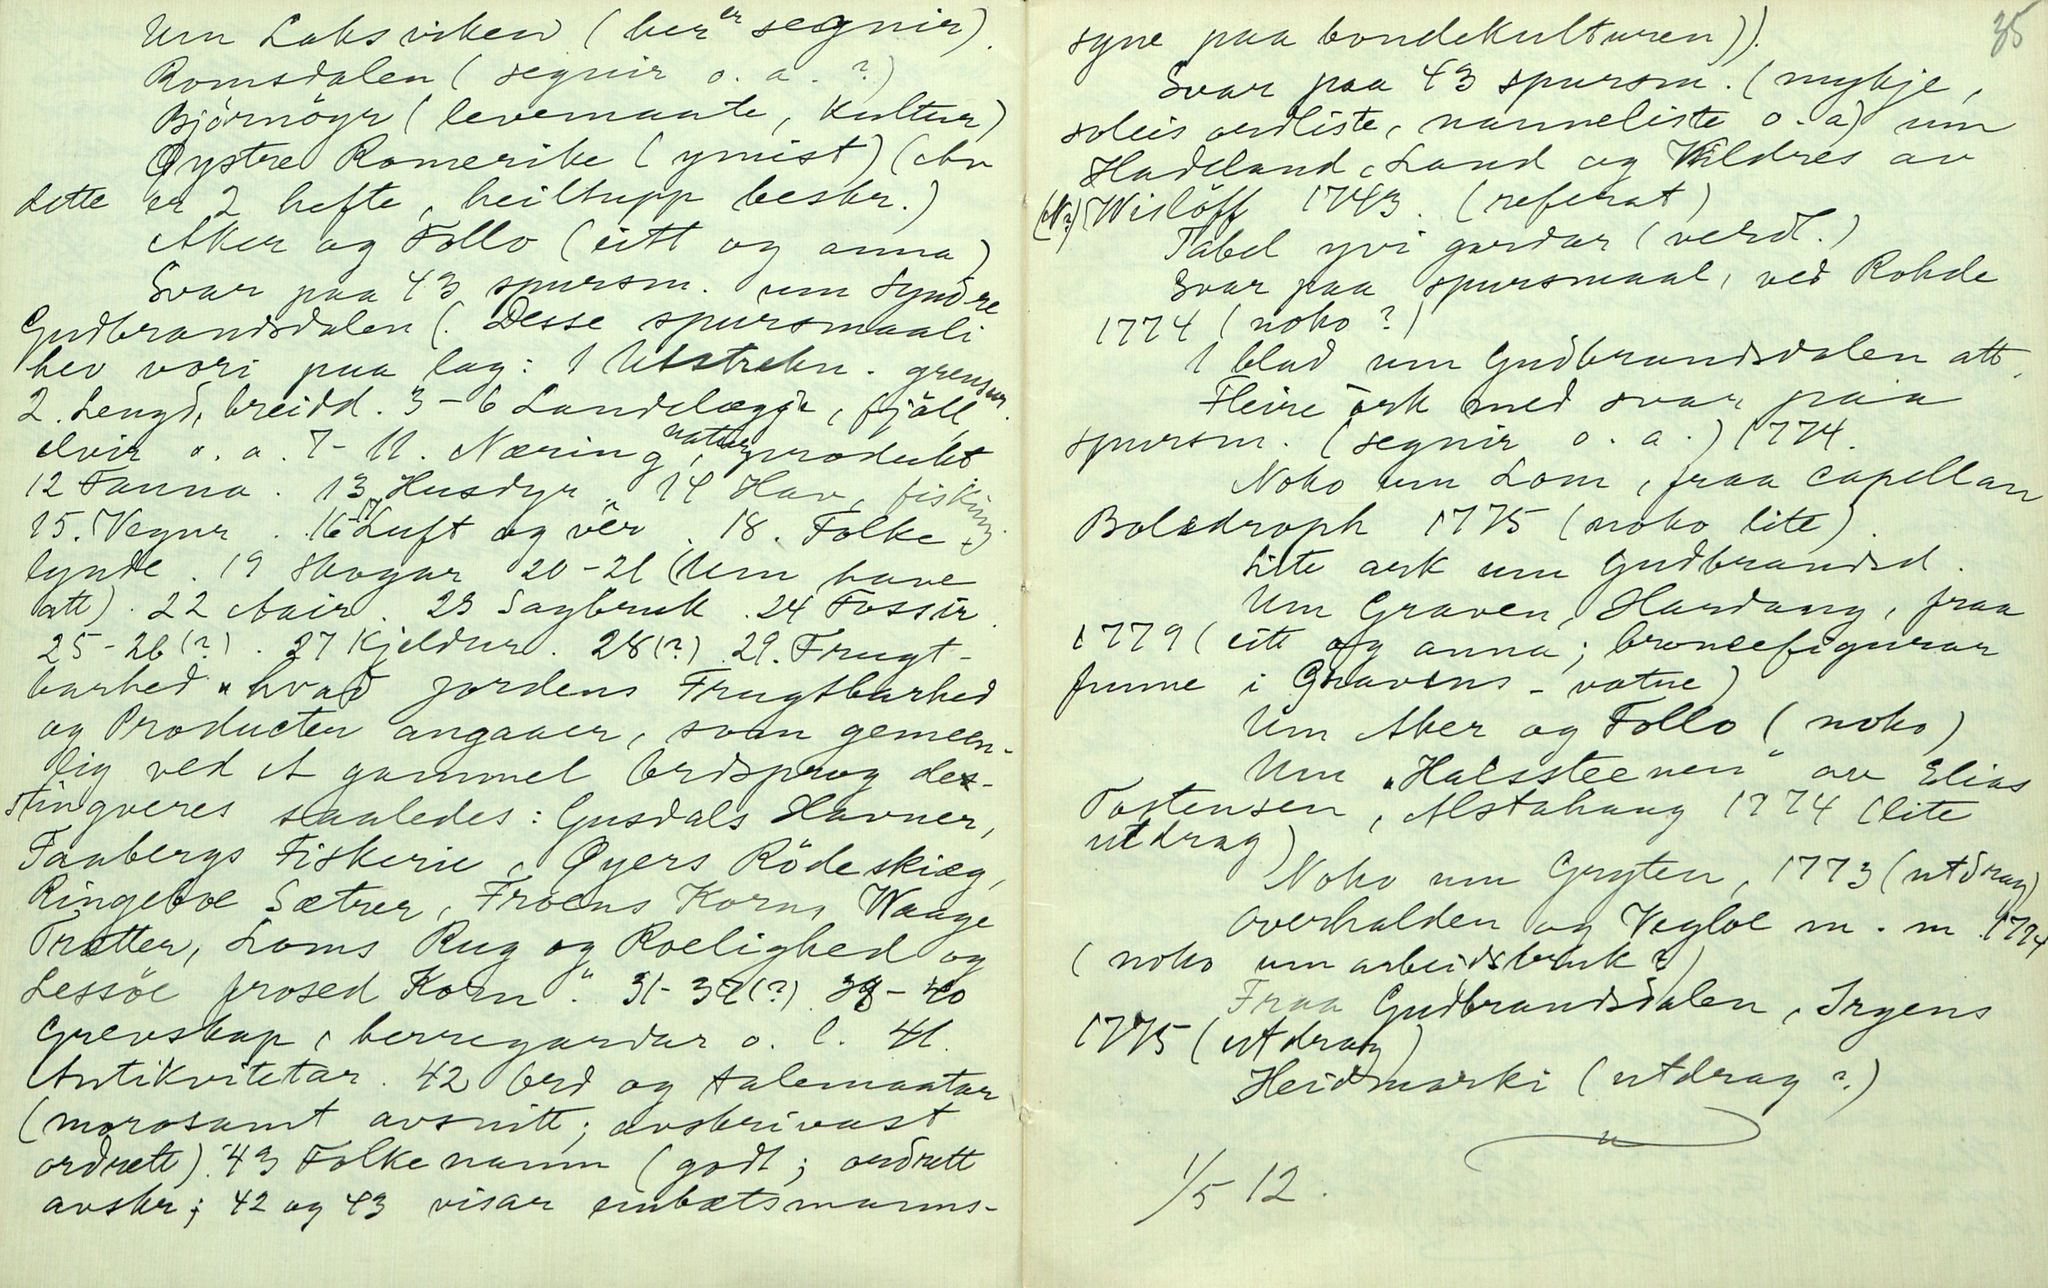 Um Laksviken (her er segnir).
Romsdalen (segnir o. a. ?)
Björnöyr (levemaate, kultur)
Öystre Romerike (ymist) (av
dette er 2 hefte, heiltupp beskr.)
Aker og Follo (eitt og anna)
Svar paa 43 spursm. um Syndre
Gudbrandsdalen (. Desse spursmaali
hev vori paa lag: 1 Utstrekn. grensur.
2. Lengd, breidd. 3-6 Landslægje, fjöll,
elvir o. a. 7-11. Næring, naturprodukt
12 Fauna. 13 Husdyr. 14 Hav, fisking
15. Vegur. 16-17 Luft og vêr. 18. Folke-
lynde. 19 Skogar 20-21 (Um have
att). 22 Aair. 23 Sagbruk. 24 Fossir.
25-26 (?). 27 Kjeldur. 28 (?). 29. Frugt-
barhed "hvad jordens Frugtbarhed
og Producter angaaer, som gemeen-
lig ved et gammel Ordsprog des-
tingveres saaledes: Gusdals Havner,
Faabergs Fiskerie, Øyers Rödeskiæg,
Ringeboe Sætrer, Froens Korn, Waage
Trætter, Loms Rug og Roelighed og
Lessöe frosed Korn". 31-37 (?) 38-40
Grevskap, herregardar o. l. 41.
Antikvitetar. 42 Ord og talemaatar
(morosamt avsnitt; avskrivast
ordrett). 43 Folkenamn (godt; ordrett
avskr; 42 og 43 visar embætsmanns-
35
syne paa bondekulturen)).
Svar paa 43 spursm. (mykje,
soleis ordliste, namneliste o. a) um
Hadeland, Land og Valdres av
(N?) Wislöff 1743. (referat)
Tabel yvi gardar (verdt.)
Svar paa spursmaal, ved Rohde
1774 (noko?)
1 blad um Gudbrandsdalen att.
Fleire ark med svar paa
spursm. (segnir o. a.) 1774.
Noko um Lom, fraa capellan
Bolsdroph 1775 (noko lite).
Lite ark um Gudbrandsd.
Um Graven, Hardang, fraa
1779 (eitt og anna; broncefigurar
funne i Gravens-vatne)
Um Aker og Follo (noko)
Um "Halssteenen" av Elias
Tostensen, Alstahaug 1774 (lite
utdrag)
Noko um Gryten, 1773 (utdrag)
Overhalden og Vegloe m. m. 1774
(noko um arbeidsbruk?)
Fraa Gudbrandsdalen, Irgens
1775 (utdrag)
Heidmarki (utdrag?)
1/5 12.